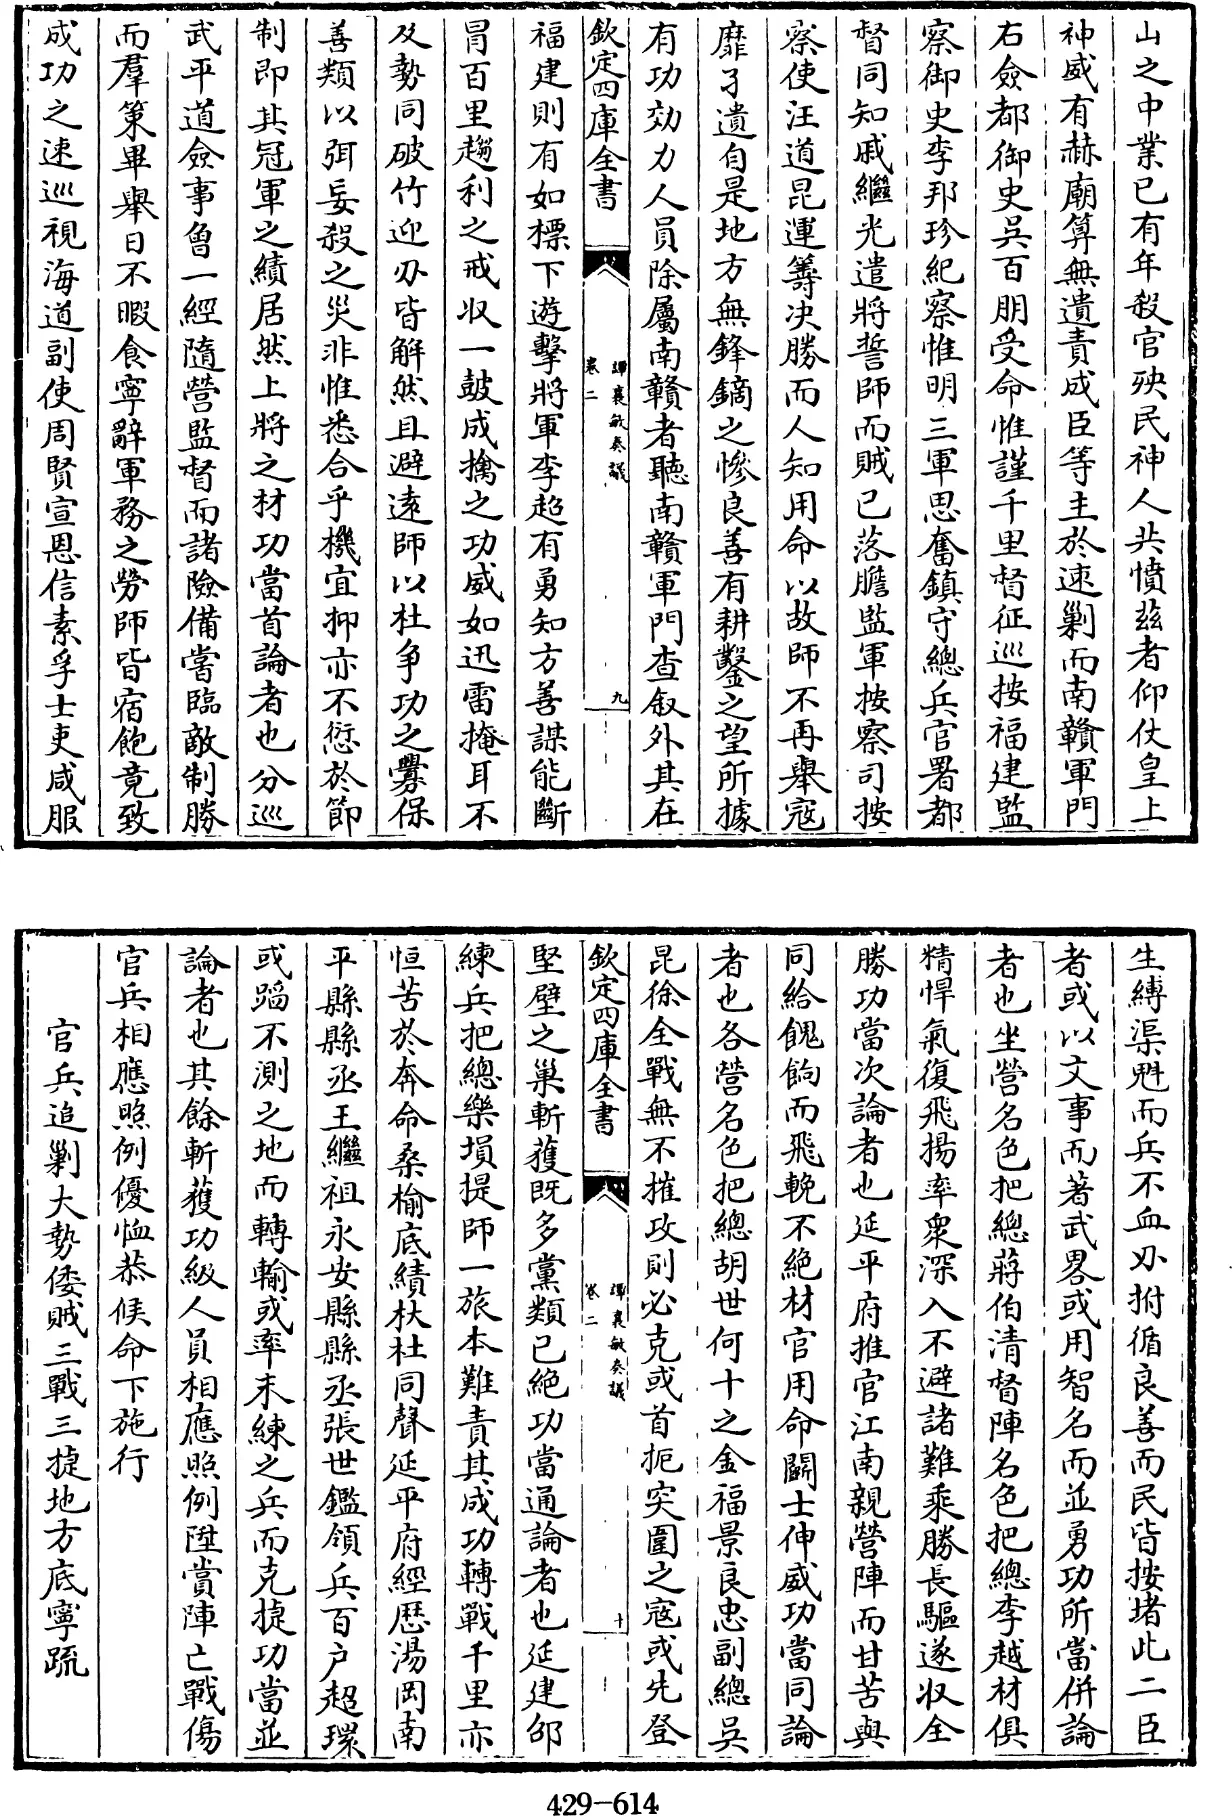 山之中業已有年殺官殃民神人共憤茲者仰仗皇上
神威有赫廟算無遺責成臣等主於速剿而南贛軍門
右僉都御史吳百朋受命惟謹千里督征巡按福建監
察御史李邦珍紀察惟明三軍思奮鎮守總兵官署都
督同知戚繼光遣將誓師而賊已落膽監軍按察司按
察使汪道昆運籌决勝而人知用命以故師不再舉寇
靡孑遺自是地方無鋒鏑之慘良善有耕鑿之望所據
有功効力人員除屬南贛者聽南贛軍門查叙外其在
欽定四庫全書
譚襄敏奏議
卷二
九
福建則有如標下遊擊將軍李超有勇知方善謀能斷
冐百里趨利之戒收一鼓成擒之功威如迅雷掩耳不
及勢同破竹迎刃皆解然且避逺師以杜争功之釁保
善類以弭妄殺之災非惟悉合乎機宜抑亦不愆於節
制即其冠軍之績居然上將之材功當首論者也分巡
武平道僉事曾一經隨營監督而諸險備嘗臨敵制勝
而羣策畢舉日不暇食寧辭軍務之勞師皆宿飽竟致
成功之速巡視海道副使周賢宣恩信素孚士吏咸服
生縛渠魁而兵不血刃拊循良善而民皆按堵此二臣
者或以文事而著武畧或用智名而並勇功所當併論
者也坐營名色把總蔣伯清督陣名色把總李越材俱
精悍氣復飛揚率衆深入不避諸難乘勝長驅遂收全
勝功當次論者也延平府推官江南親營陣而甘苦與
同給餽餉而飛輓不絶材官用命鬭士伸威功當同論
者也各營名色把總胡世何十之金福景良忠副總吳
昆徐全戰無不摧攻則必克或首扼突圍之寇或先登
欽定四庫全書
譚襄敏奏議
卷二
十
堅壁之巢斬獲既多黨類已絶功當通論者也延建邵
練兵把總樂塤提師一旅本難責其成功轉戰千里亦
恒苦於奔命桑榆底績杕杜同聲延平府經歷湯岡南
平縣縣丞王繼祖永安縣縣丞張世鑑領兵百户趙環
或蹈不測之地而轉輸或率未練之兵而克捷功當並
論者也其餘斬獲功級人員相應照例陞賞陣亡戰傷
官兵相應照例優恤恭候命下施行
官兵追剿大勢倭賊三戰三捷地方底寧疏
429-614